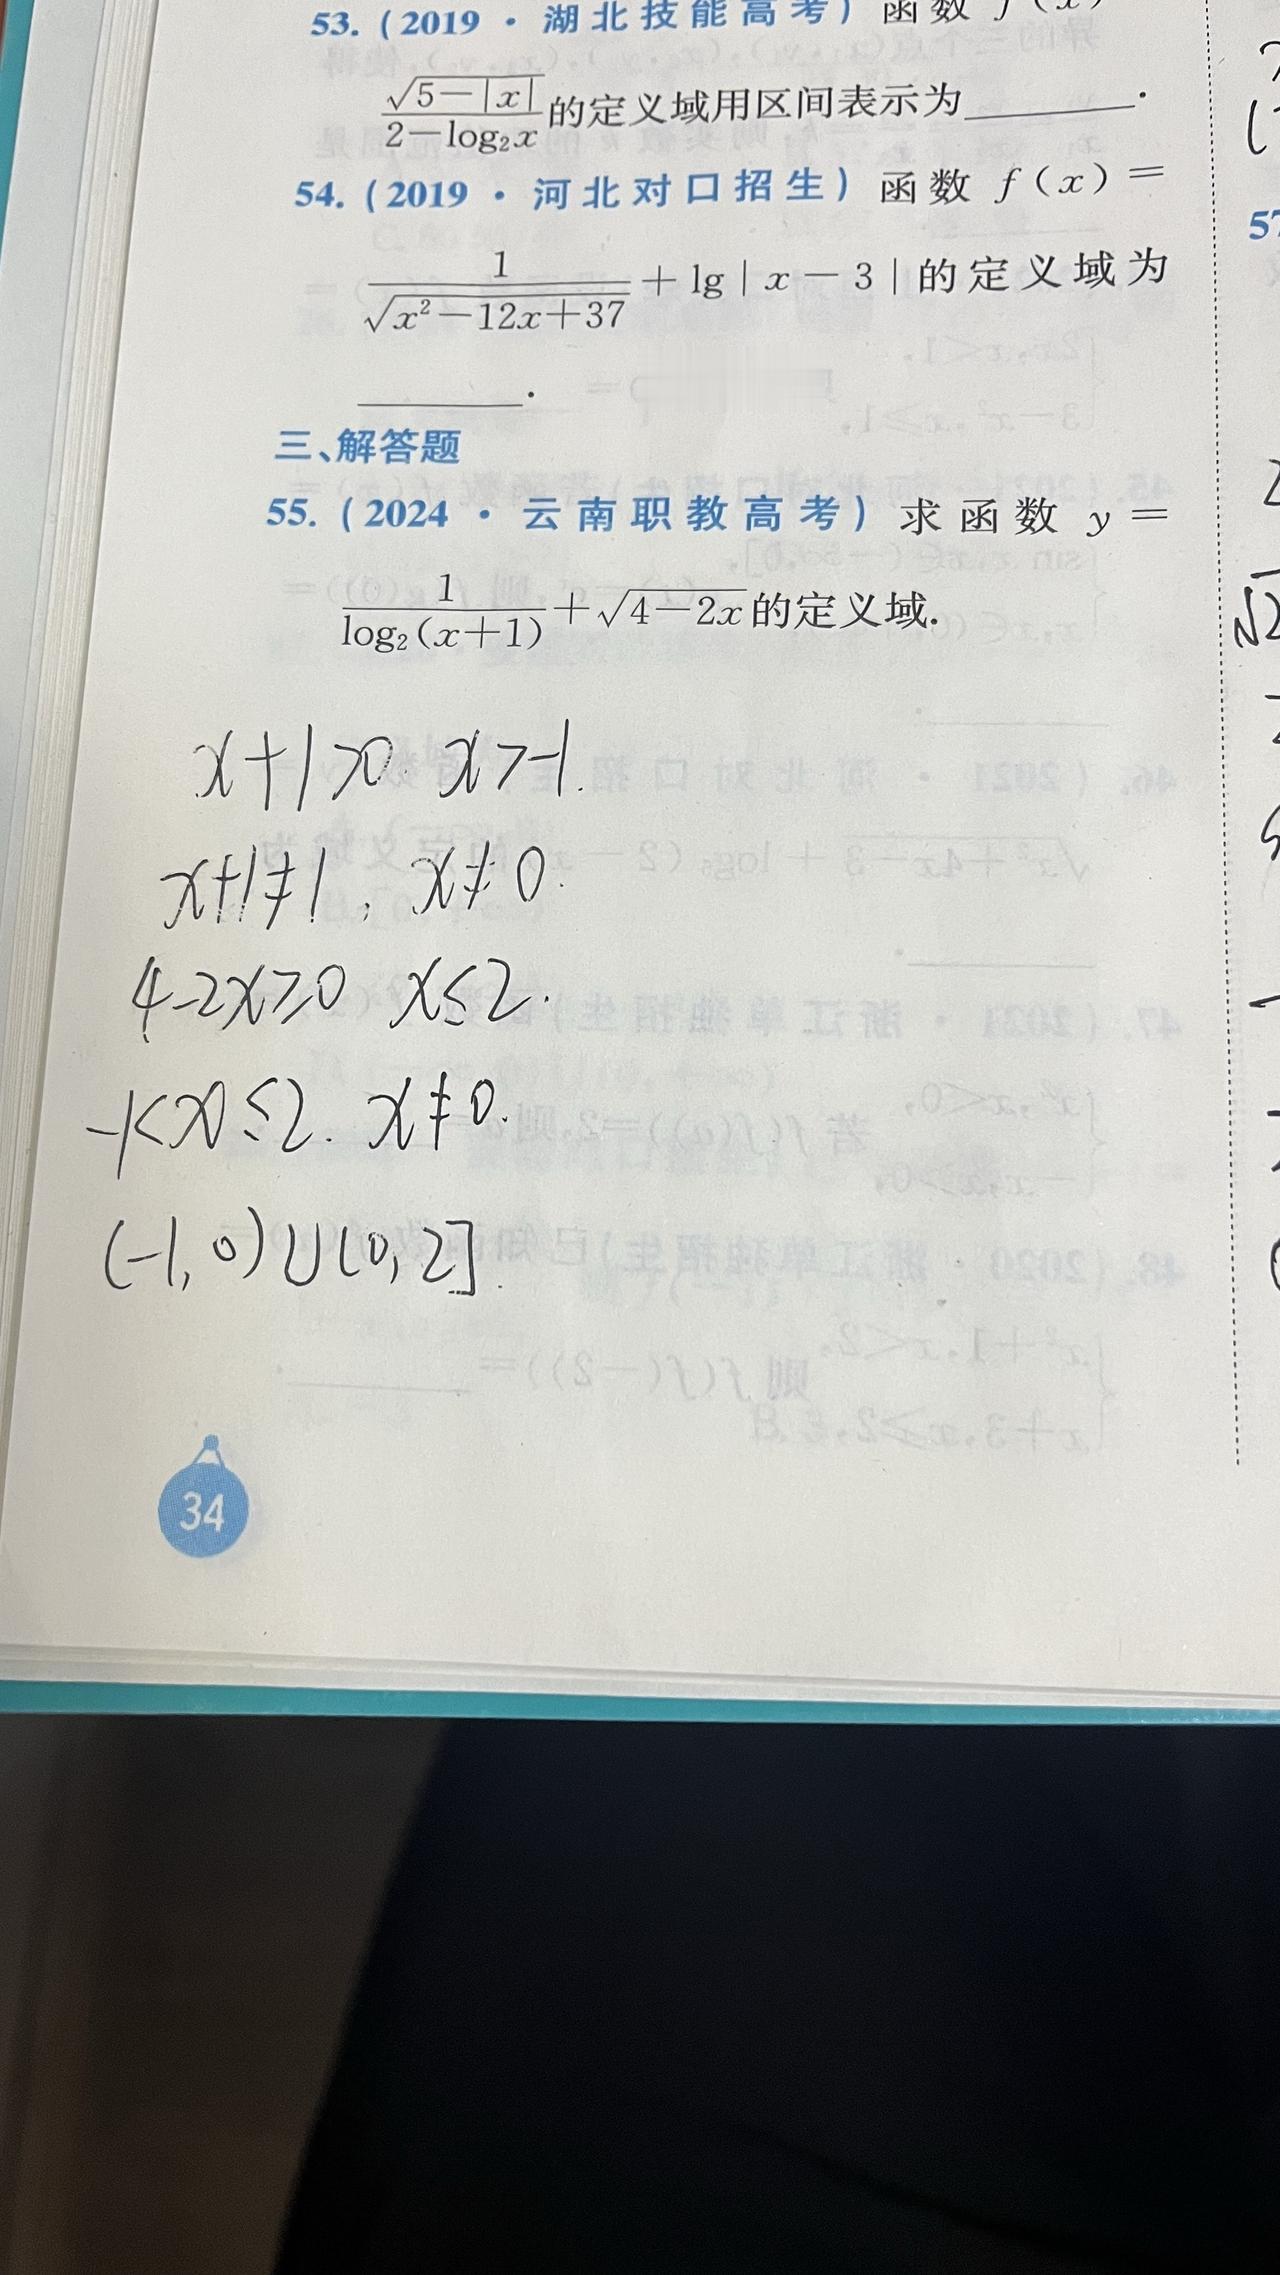 53. (2019 · 湖北技能高考) 函数 f(x)
√5-|x| / 2-log₂x 的定义域用区间表示为______.
54. (2019 · 河北对口招生) 函数 f(x) =
1 / √x²-12x+37 + lg|x-3|的定义域为
______.
三、解答题
55. (2024 · 云南职教高考) 求函数 y =
1 / log₂(x+1) + √4-2x的定义域.
x+1>0. x>-1.
x+1≠1, x≠0.
4-2x≥0 x≤2.
-1<x≤2. x≠0.
(-1,0)∪(0,2].
34
57